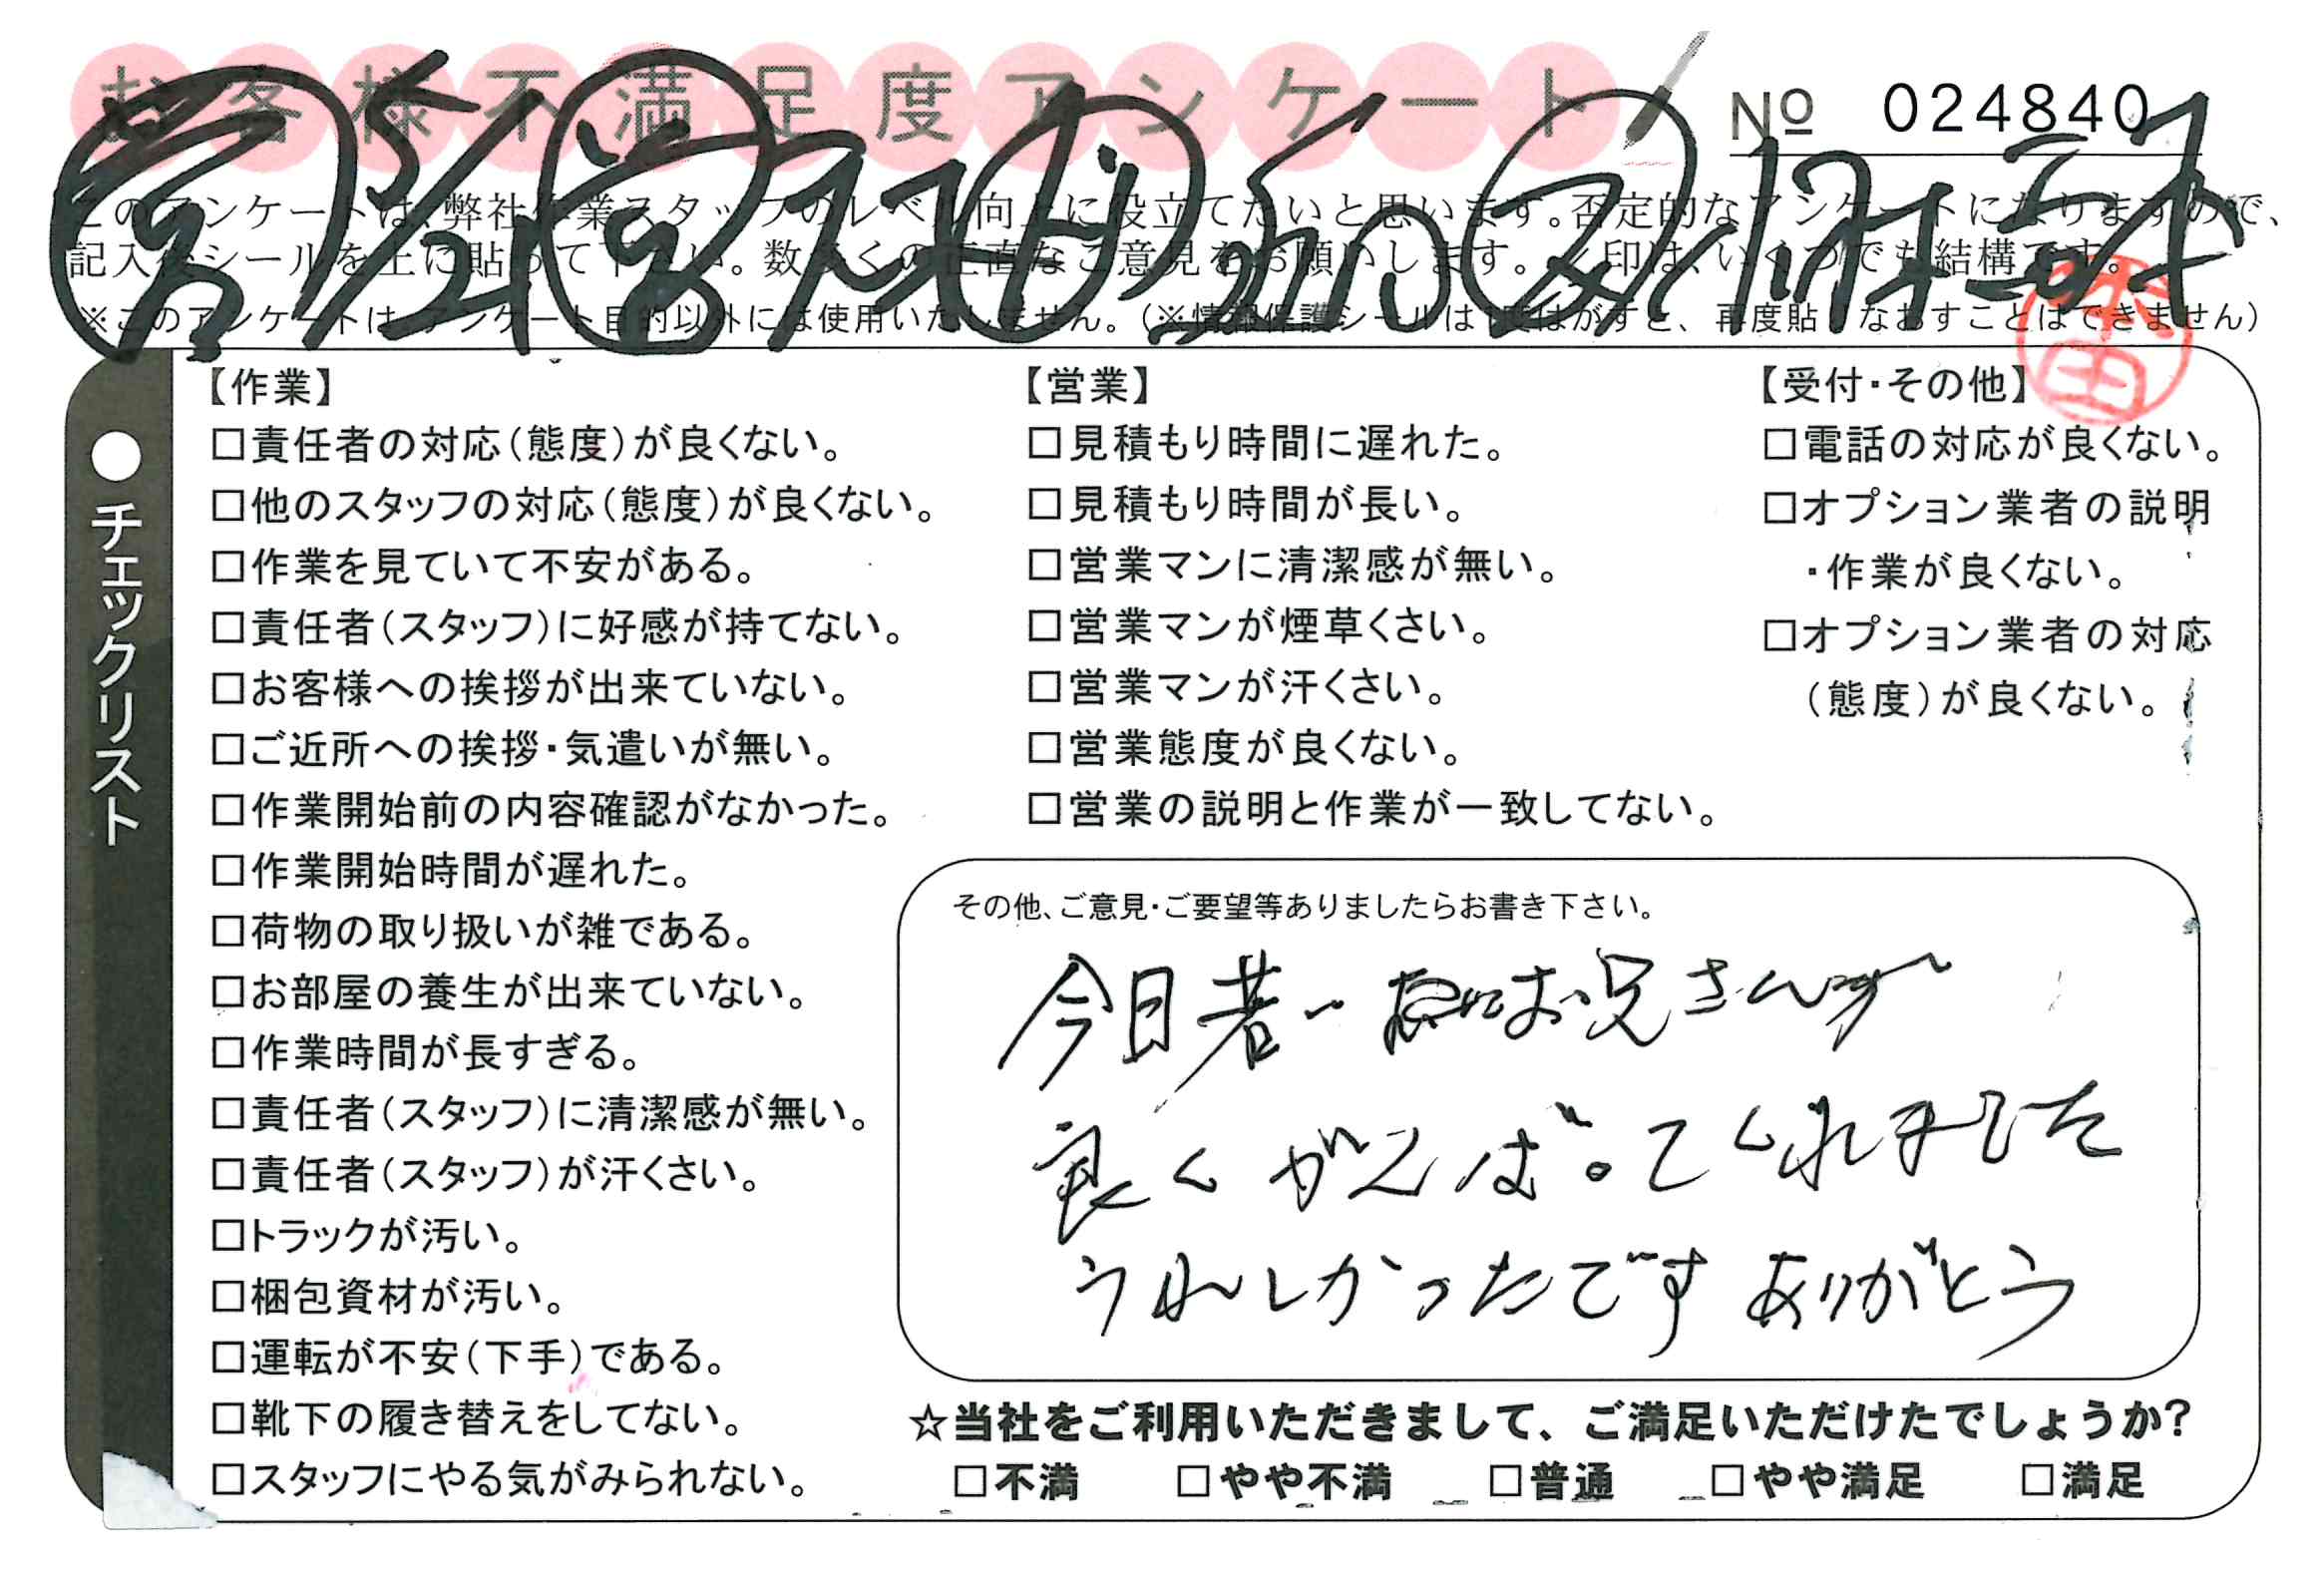 お客様不満足度アンケート
No 024840
このアンケートは、弊社作業スタッフのレベル向上に役立てたいと思います。否定的なアンケートになりますので、
記入後シールを上に貼って下さい。数多くの正直なご意見をお願いします。✓印は、いくつでも結構です。
※このアンケートは、アンケート目的以外には使用いたしません。（※情報保護シールは1度はがすと、再度貼りなおすことはできません）
●チェックリスト
【作業】
□責任者の対応（態度）が良くない。
□他のスタッフの対応（態度）が良くない。
□作業を見ていて不安がある。
□責任者（スタッフ）に好感が持てない。
□お客様への挨拶が出来ていない。
□ご近所への挨拶・気遣いが無い。
□作業開始前の内容確認がなかった。
□作業開始時間が遅れた。
□荷物の取り扱いが雑である。
□お部屋の養生が出来ていない。
□作業時間が長すぎる。
□責任者（スタッフ）に清潔感が無い。
□責任者（スタッフ）が汗くさい。
□トラックが汚い。
□梱包資材が汚い。
□運転が不安（下手）である。
□靴下の履き替えをしてない。
□スタッフにやる気がみられない。
【営業】
□見積もり時間に遅れた。
□見積もり時間が長い。
□営業マンに清潔感が無い。
□営業マンが煙草くさい。
□営業マンが汗くさい。
□営業態度が良くない。
□営業の説明と作業が一致してない。
【受付・その他】
□電話の対応が良くない。
□オプション業者の説明
・作業が良くない。
□オプション業者の対応
（態度）が良くない。
その他、ご意見・ご要望等ありましたらお書き下さい。
今日若いお兄さんが
良くがんばってくれました
うれしかったです ありがとう
☆当社をご利用いただきまして、ご満足いただけたでしょうか？
□不満 □やや不満 □普通 □やや満足 □満足